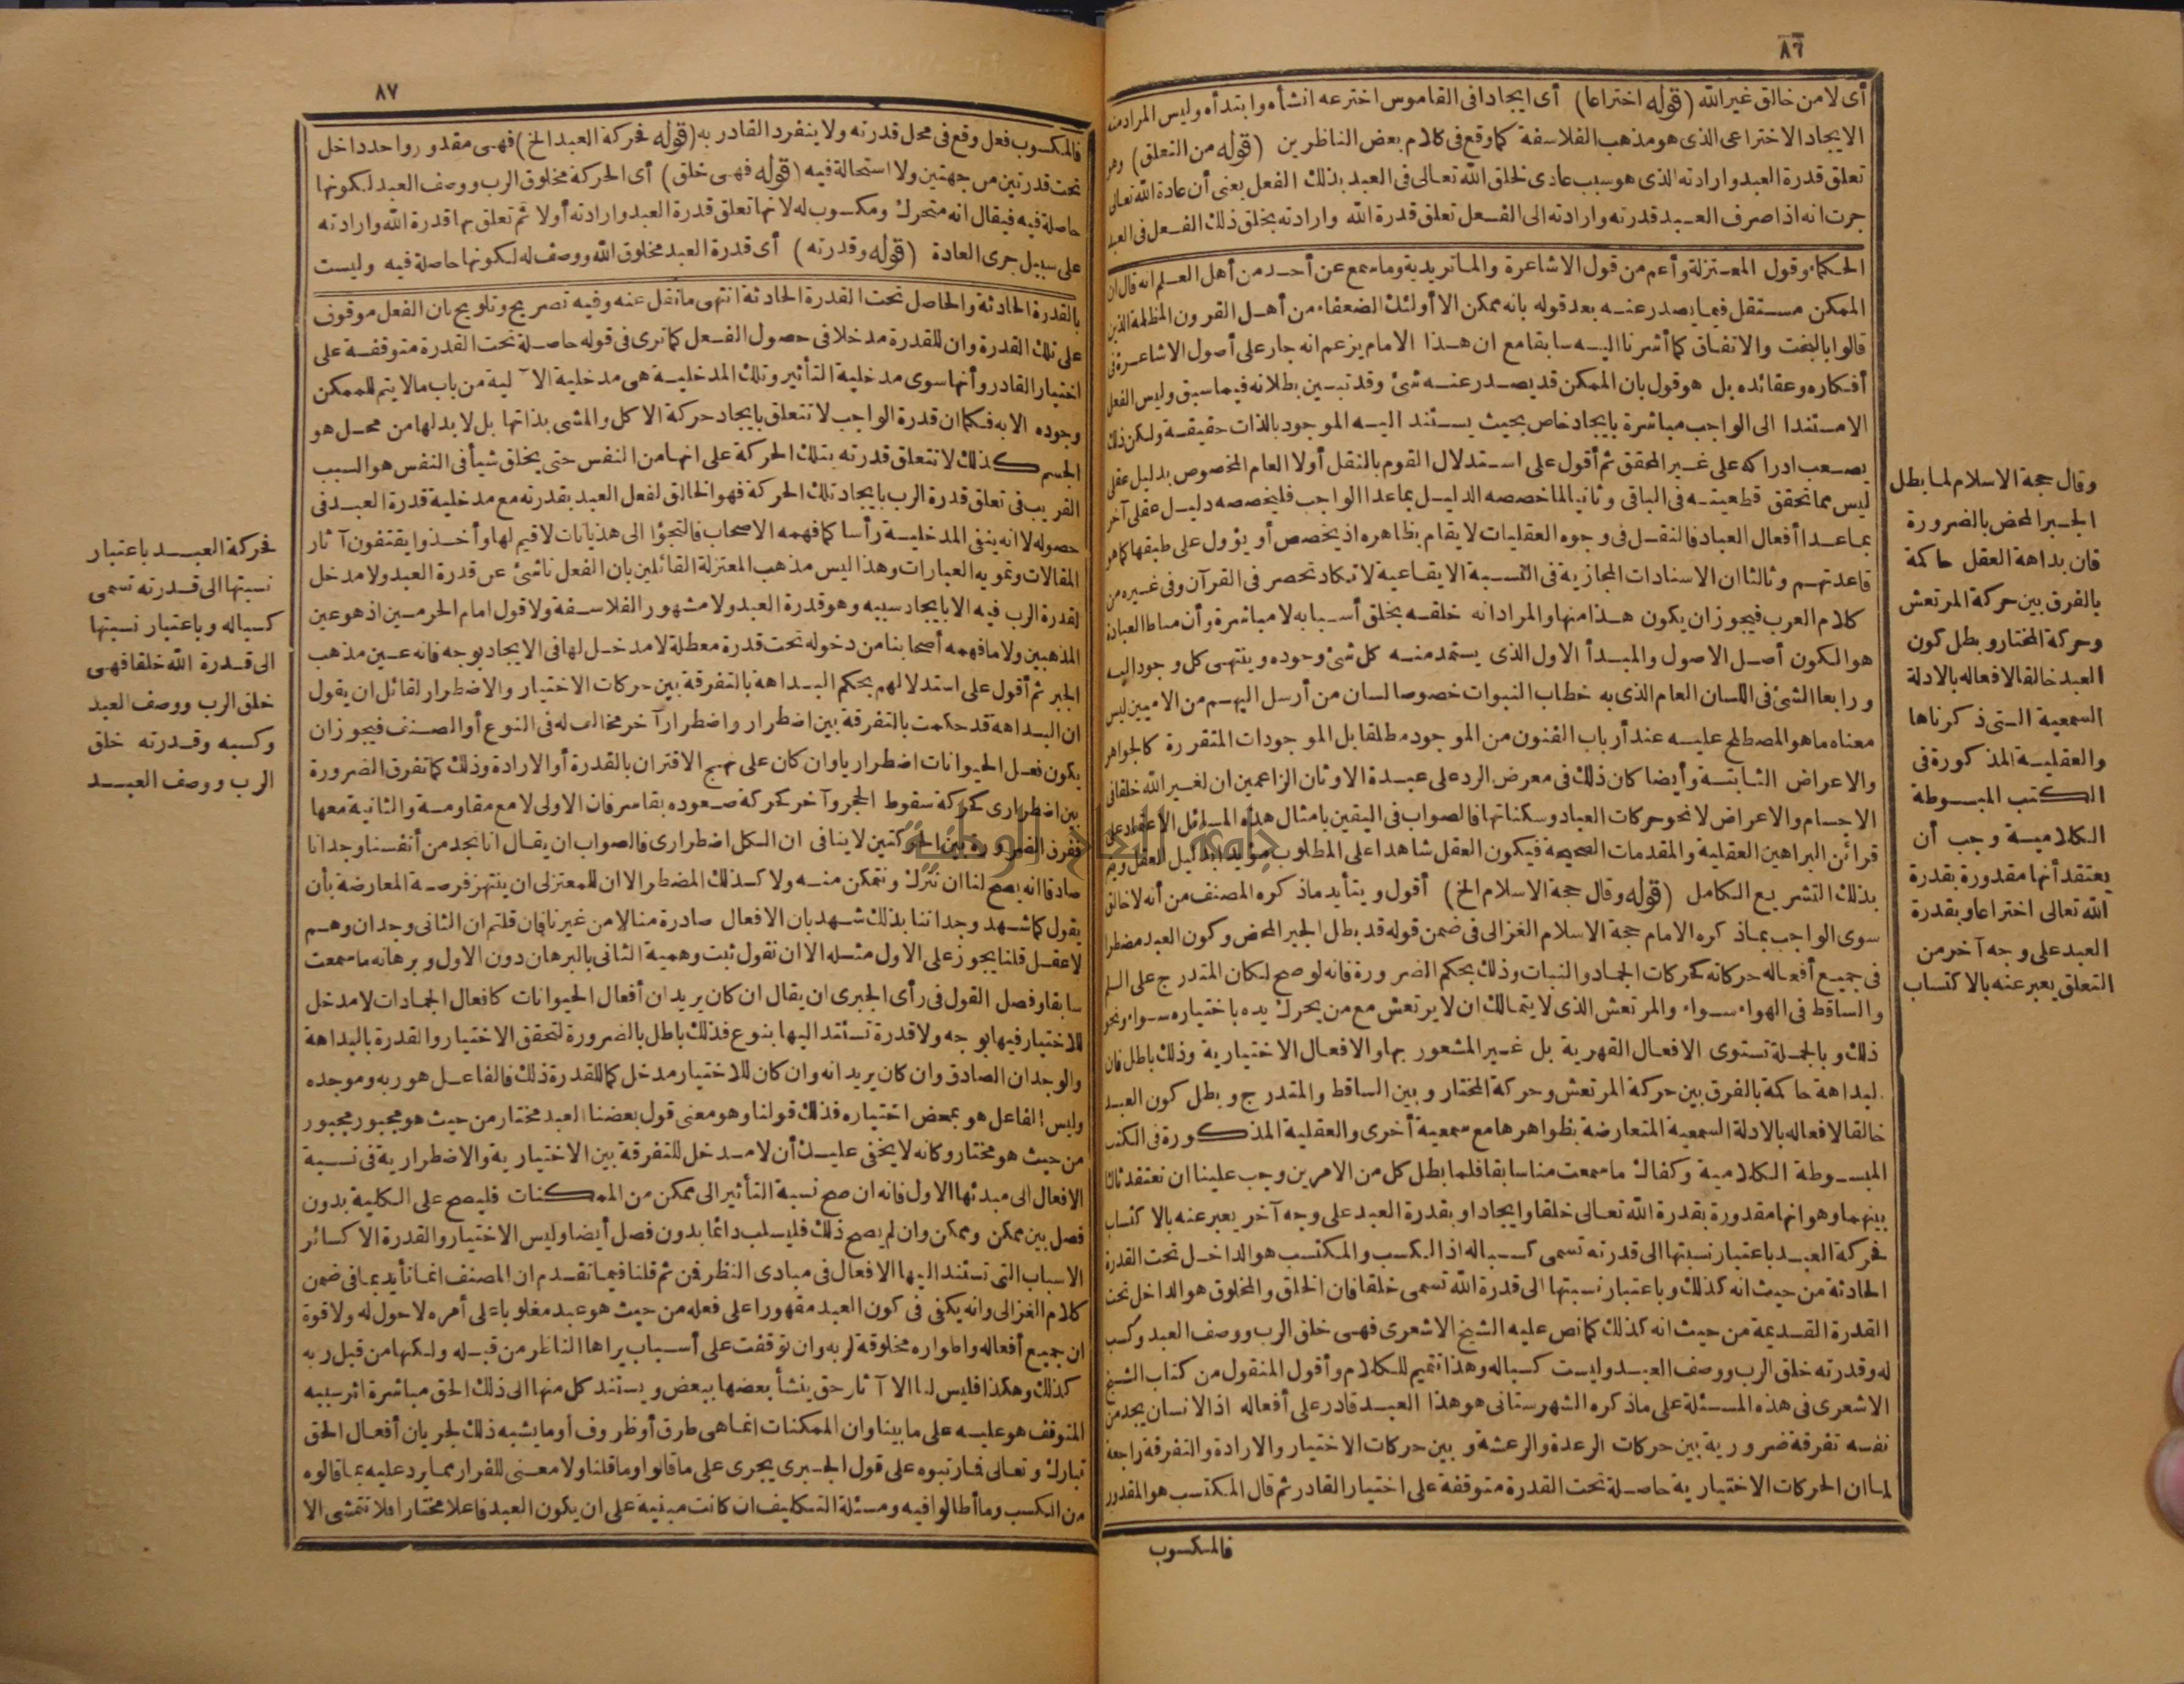 ٨٦
أى لا من خالق غير الله (قوله اختراعا) أى ايجادا فى القاموس اخترعه انشأه وابتدأه وليس المراد منه
الايجاد الاختراعى الذى هو مذهب الفلاسفة كما وقع فى كلام بعض الناظرين (قوله من التعلق) وهو
تعلق قدرة العبد وارادته الذى هو سبب عادى لخلق الله تعالى فى العبد بذلك الفعل يعنى أن عادة الله تعالى
جرت انه اذا صرف العبد قدرته وارادته الى الفعل تعلق قدرة الله وارادته بخلق ذلك الفعل فى العبد
الحكماء وقول المعتزلة وأعم من قول الاشاعرة والماتريدية وما سمع عن أحد من أهل العلم انه قال ان
الممكن مستقل فيما يصدر عنه بعد قوله بانه ممكن الا أولئك الضعفاء من أهل القرون المظلمة الذين
قالوا بالبخت والاتفاق كما أشرنا اليه سابقا مع ان هذا الامام يزعم انه جار على أصول الاشاعرة فى
أفكاره وعقائده بل هو قول بان الممكن قد يصدر عنه شئ وقد تبين بطلانه فيما سبق وليس الفعل
الا مستندا الى الواجب مباشرة بايجاد خاص بحيث يستند اليه الموجود بالذات حقيقة ولكن ذلك
يصعب ادراكه على غير المحقق ثم أقول على استدلال القوم بالنقل أولا العام المخصوص بدليل عقلى
ليس مما تحقق قطعيته فى الباقى وثانيا لما خصصه الدليل بماعدا الواجب فليخصصه دليل عقلى آخر
بماعدا أفعال العباد فالنقل فى وجوه العقليات لا يقام بظاهره اذ يخصص أو يؤول على طبقها كما هو
قاعدتهم وثالثا ان الاسنادات المجازية فى النسبة الايقاعية لا تكاد تحصر فى القرآن وفى غيره من
كلام العرب فيجوز ان يكون هذا منها والمراد انه خلقه بخلق أسبابه لا مباشرة وأن مناط العبادة
هو الكون أصل الاصول والمبدأ الاول الذى يستمد منه كل شئ وجوده وينتهى كل وجود اليه
ورابعا الشئ فى اللسان العام الذى به خطاب النبوات خصوصا لسان من أرسل اليهم من الاميين ليس
معناه ما هو المصطلح عليه عند أرباب الفنون من الموجود مطلقا بل الموجودات المتقررة كالجواهر
والاعراض الثابتة وأيضا كان ذلك فى معرض الرد على عبدة الاوثان الزاعمين ان لغير الله خلقا فى
الاجسام والاعراض لا نحو حركات العباد وسكناتها فالصواب فى اليقين بامثال هذه المسائل الاعتماد على
قرائن البراهين العقلية والمقدمات الصحيحة فيكون العقل شاهدا على المطلوب مؤيدا بدليل العقل ويتم
بذلك التشريع الكامل (قوله وقال حجة الاسلام الخ) أقول ويتأيد ما ذكره المصنف من أنه لا خالق
سوى الواجب بما ذكره الامام حجة الاسلام الغزالى فى ضمن قوله قد بطل الجبر المحض وكون العبد مضطرا
فى جميع أفعاله حركاته كحركات الجماد والنبات وذلك بحكم الضرورة فانه لو صح لكان المتدرج على السلم
والساقط فى الهواء سواء والمرتعش الذى لا يتمالك ان لا يرتعش مع من يحرك يده باختياره سواء ونحو
ذلك وبالجملة تستوى الافعال القهرية بل غير المشعور بها والافعال الاختيارية وذلك باطل فان
البداهة حاكمة بالفرق بين حركة المرتعش وحركة المختار وبين الساقط والمتدرج وبطل كون العبد
خالقا لافعاله بالادلة السمعية المتعارضة بظواهرها مع سمعية أخرى والعقلية المذكورة فى الكتب
المبسوطة الكلامية وكفاك ما سمعت منا سابقا فلما بطل كل من الامرين وجب علينا ان نعتقد ثالثا
بينهما وهو انها مقدورة بقدرة الله تعالى خلقا وايجادا وبقدرة العبد على وجه آخر يعبر عنه بالاكتساب
فحركة العبد باعتبار نسبتها الى قدرته تسمى كسبا له اذ الكسب والمكتسب هو الداخل تحت القدرة
الحادثة من حيث انه كذلك وباعتبار نسبتها الى قدرة الله تسمى خلقا فان الخلق والمخلوق هو الداخل تحت
القدرة القديمة من حيث انه كذلك كما نص عليه الشيخ الاشعرى فهى خلق الرب ووصف العبد وكسب
له وقدرته خلق الرب ووصف العبد وليست كسبا له وهذا تتميم للكلام وأقول المنقول من كتاب الشيخ
الاشعرى فى هذه المسئلة على ما ذكره الشهرستانى هو هذا العبد قادر على أفعاله اذ الانسان يجد من
نفسه تفرقة ضرورية بين حركات الرعدة والرعشة وبين حركات الاختيار والارادة والتفرقة راجعة
لما ان الحركات الاختيارية حاصلة تحت القدرة متوقفة على اختيار القادر ثم قال المكتسب هو المقدور
فالمكسوب
وقال حجة الاسلام لما بطل
الجبر المحض بالضرورة
فان بداهة العقل حاكمة
بالفرق بين حركة المرتعش
وحركة المختار وبطل كون
العبد خالقا لافعاله بالادلة
السمعية التى ذكرناها
والعقلية المذكورة فى
الكتب المبسوطة
الكلامية وجب أن
يعتقد أنها مقدورة بقدرة
الله تعالى اختراعا وبقدرة
العبد على وجه آخر من
التعلق يعبر عنه بالاكتساب
٨٧
فالمكسوب فعل وقع فى محل قدرته ولا ينفرد القادر به (قوله فحركة العبد الخ) فهى مقدور واحد داخل
تحت قدرتين من جهتين ولا استحالة فيه (قوله فهى خلق) أى الحركة مخلوق الرب ووصف العبد لكونها
حاصلة فيه فيقال انه متحرك ومكسوب له لانها تعلق قدرة العبد وارادته أولا ثم تعلق بها قدرة الله وارادته
على سبيل جرى العادة (قوله وقدرته) أى قدرة العبد مخلوق الله ووصف له لكونها حاصلة فيه وليست
بالقدرة الحادثة والحاصل تحت القدرة الحادثة انتهى ما نقل عنه وفيه تصريح وتلويح بان الفعل موقوف
على تلك القدرة وان للقدرة مدخلا فى حصول الفعل كما ترى فى قوله حاصلة تحت القدرة متوقفة على
اختيار القادر وأنها سوى مدخلية التأثير وتلك المدخلية هى مدخلية الآلية من باب ما لا يتم للممكن
وجوده الا به فكما ان قدرة الواجب لا تتعلق بايجاد حركة الاكل والمشى بذاتها بل لا بد لها من محل هو
الجسم كذلك لا تتعلق قدرته بتلك الحركة على انها من النفس حتى يخلق شيأ فى النفس هو السبب
القريب فى تعلق قدرة الرب بايجاد تلك الحركة فهو الخالق لفعل العبد بقدرته مع مدخلية قدرة العبد فى
حصوله لا انه ينفى المدخلية رأسا كما فهمه الاصحاب فالتجؤا الى هذيانات لا قيم لها وأخذوا يقتفون آثار
المقالات وتمويه العبارات وهذا ليس مذهب المعتزلة القائلين بان الفعل ناشئ عن قدرة العبد ولا مدخل
لقدرة الرب فيه الا بايجاد سببه وهو قدرة العبد ولا مشهور الفلاسفة ولا قول امام الحرمين اذ هو عين
المذهبين ولا ما فهمه أصحابنا من دخوله تحت قدرة معطلة لا مدخل لها فى الايجاد بوجه فانه عين مذهب
الجبر ثم أقول على استدلالهم بحكم البداهة بالتفرقة بين حركات الاختيار والاضطرار لقائل ان يقول
ان البداهة قد حكمت بالتفرقة بين اضطرار واضطرار آخر مخالف له فى النوع أو الصنف فيجوز ان
يكون فعل الحيوانات اضطراريا وان كان على نهج الاقتران بالقدرة أو الارادة وذلك كما تفرق الضرورة
بين اضطرارى كحركة سقوط الحجر وآخر كحركة صعوده بقاسر فان الاولى لا مع مقاومة والثانية معها
ففرق الضرورة بين الحركتين لا ينافى ان الكل اضطرارى فالصواب ان يقال انا نجد من أنفسنا وجدانا
صادقا انه يصح لنا ان نترك ونتمكن منه ولا كذلك المضطر الا ان للمعتزلى ان ينتهز فرصة المعارضة بأن
يقول كما شهد وجداننا بذلك شهد بان الافعال صادرة منا لا من غيرنا فان قلتم ان الثانى وجدان وهم
لا عقل قلنا يجوز على الاول مثله الا ان نقول ثبت وهمية الثانى بالبرهان دون الاول وبرهانه ما سمعت
سابقا وفصل القول فى رأى الجبرى ان يقال ان كان يريد ان أفعال الحيوانات كافعال الجمادات لا مدخل
للاختيار فيها بوجه ولا قدرة تستند اليها بنوع فذلك باطل بالضرورة لتحقق الاختيار والقدرة بالبداهة
والوجدان الصادق وان كان يريد انه وان كان للاختيار مدخل كما للقدرة ذلك فالفاعل هو ربه وموجده
وليس الفاعل هو بمحض اختياره فذلك قولنا وهو معنى قول بعضنا العبد مختار من حيث هو مجبور مجبور
من حيث هو مختار وكانه لا يخفى عليك أن لا مدخل للتفرقة بين الاختيارية والاضطرارية فى نسبة
الافعال الى مبدئها الاول فانه ان صح نسبة التأثير الى ممكن من الممكنات فليصح على الكلية بدون
فصل بين ممكن وممكن وان لم يصح ذلك فليسلب دائما بدون فصل أيضا وليس الاختيار والقدرة الا كسائر
الاسباب التى تستند اليها الافعال فى مبادى النظر فمن ثم قلنا فيما تقدم ان المصنف انما تأيد بما فى ضمن
كلام الغزالى وانه يكفى فى كون العبد مقهورا على فعله من حيث هو عبد مغلوبا على أمره لا حول له ولا قوة
ان جميع أفعاله واطواره مخلوقة لربه وان توقفت على أسباب يراها الناظر من قبله ولكنها من قبل ربه
كذلك وهكذا فليس لنا الا آثار حق ينشأ بعضها ببعض ويستند كل منها الى ذلك الحق مباشرة اثر سببه
المتوقف هو عليه على ما بينا وان الممكنات انما هى طرق أو ظروف أو ما يشبه ذلك لجريان أفعال الحق
تبارك وتعالى فما رتبوه على قول الجبرى يجرى على ما قالوا وما قلنا ولا معنى للفرار مما يرد عليه بما قالوه
من الكسب وما أطالوا فيه ومسئلة التكليف ان كانت مبنية على ان يكون العبد فاعلا مختارا فلا تتمشى الا
فحركة العبد باعتبار
نسبتها الى قدرته تسمى
كسبا له وباعتبار نسبتها
الى قدرة الله خلقا فهى
خلق الرب ووصف العبد
وكسبه وقدرته خلق
الرب ووصف العبد